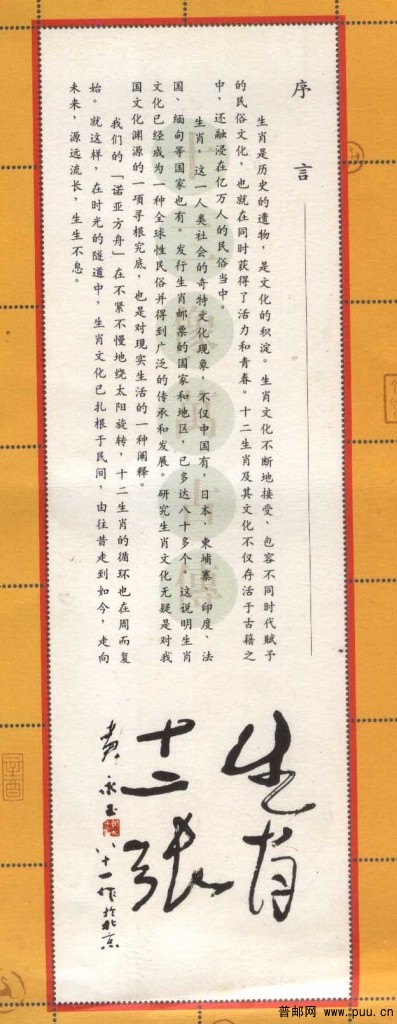 序言
生肖是历史的遗物，是文化的积淀。生肖文化不断地接受、包容不同时代赋予
的民俗文化，也就在同时获得了活力和青春。十二生肖及其文化不仅存活于古籍之
中，还融浸在亿万人的民俗当中。
生肖，这一人类社会的奇特文化现象，不仅中国有，日本、柬埔寨、印度、法
国、缅甸等国家也有。发行生肖邮票的国家和地区，已多达八十多个。这说明生肖
文化已经成为一种全球性民俗并得到广泛的传承和发展。研究生肖文化无疑是对我
国文化渊源的一项寻根究底，也是对现实生活的一种阐释。
我们的「诺亚方舟」在不紧不慢地绕太阳旋转，十二生肖的循环也在周而复
始。就这样，在时光的隧道中，生肖文化已扎根于民间，由往昔走到如今，走向
未来，源远流长，生生不息。
生肖
十二张
黄永玉
八十一作于北京
辛酉
普邮网 www.puu.cn